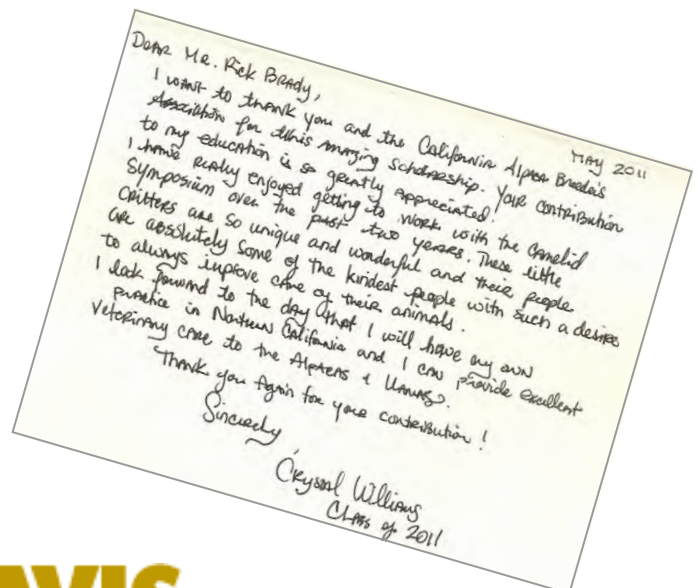 May 2011
Dear Mr. Rick Brady,
I want to thank you and the California Alpaca Breeders
Association for this amazing scholarship. Your contribution
to my education is so greatly appreciated!
I have really enjoyed getting to work with the Camelid
Symposium over the past two years. These little
critters are so unique and wonderful and their people
are absolutely some of the kindest people with such a desire
to always improve care of their animals.
I look forward to the day that I will have my own
practice in Northern California and I can provide excellent
veterinary care to the Alpacas & Llamas.
Thank you again for your contribution!
Sincerely,
Crystal Williams
Class of 2011
AVIS